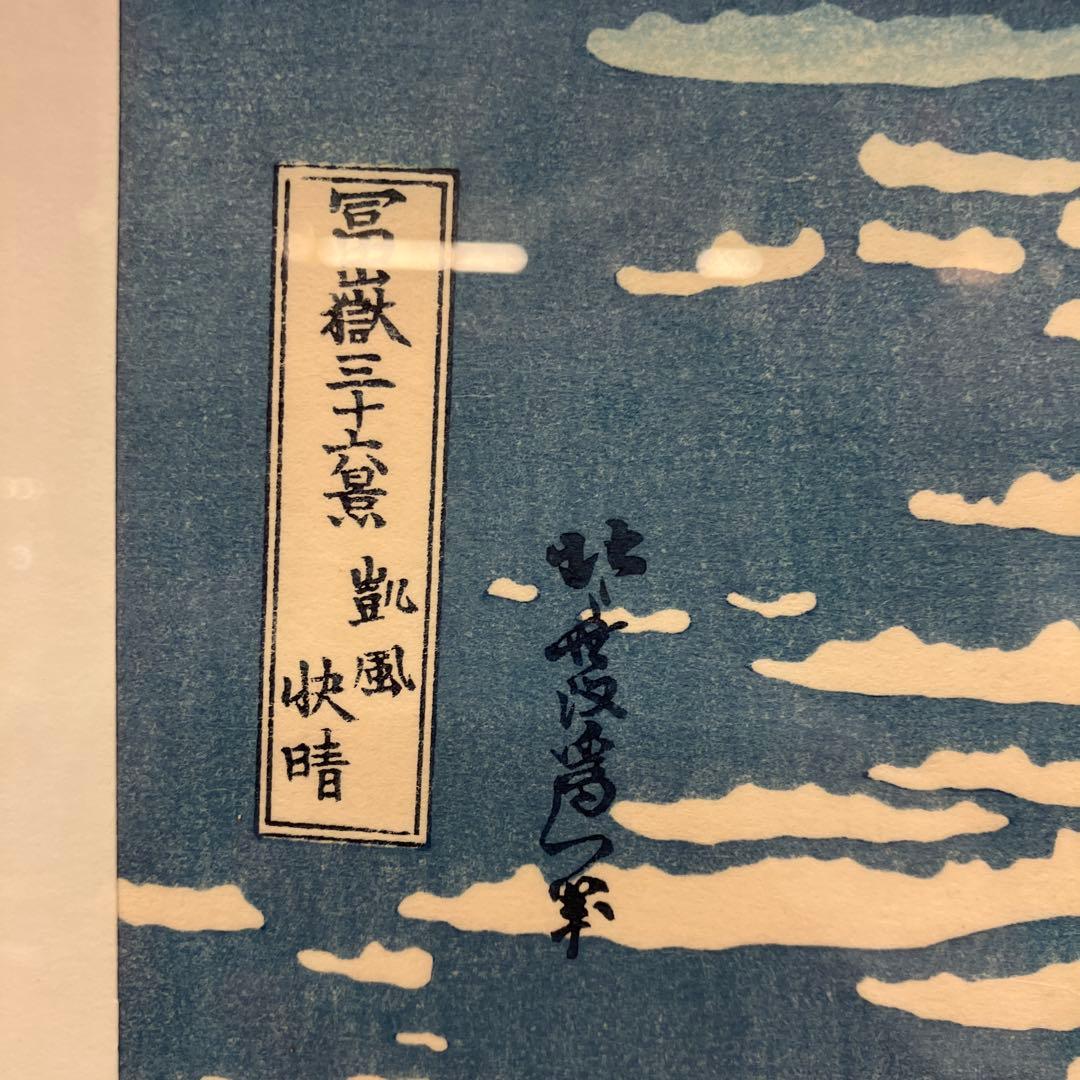 冨嶽三十六景 凱風
快晴
北斎改為一筆